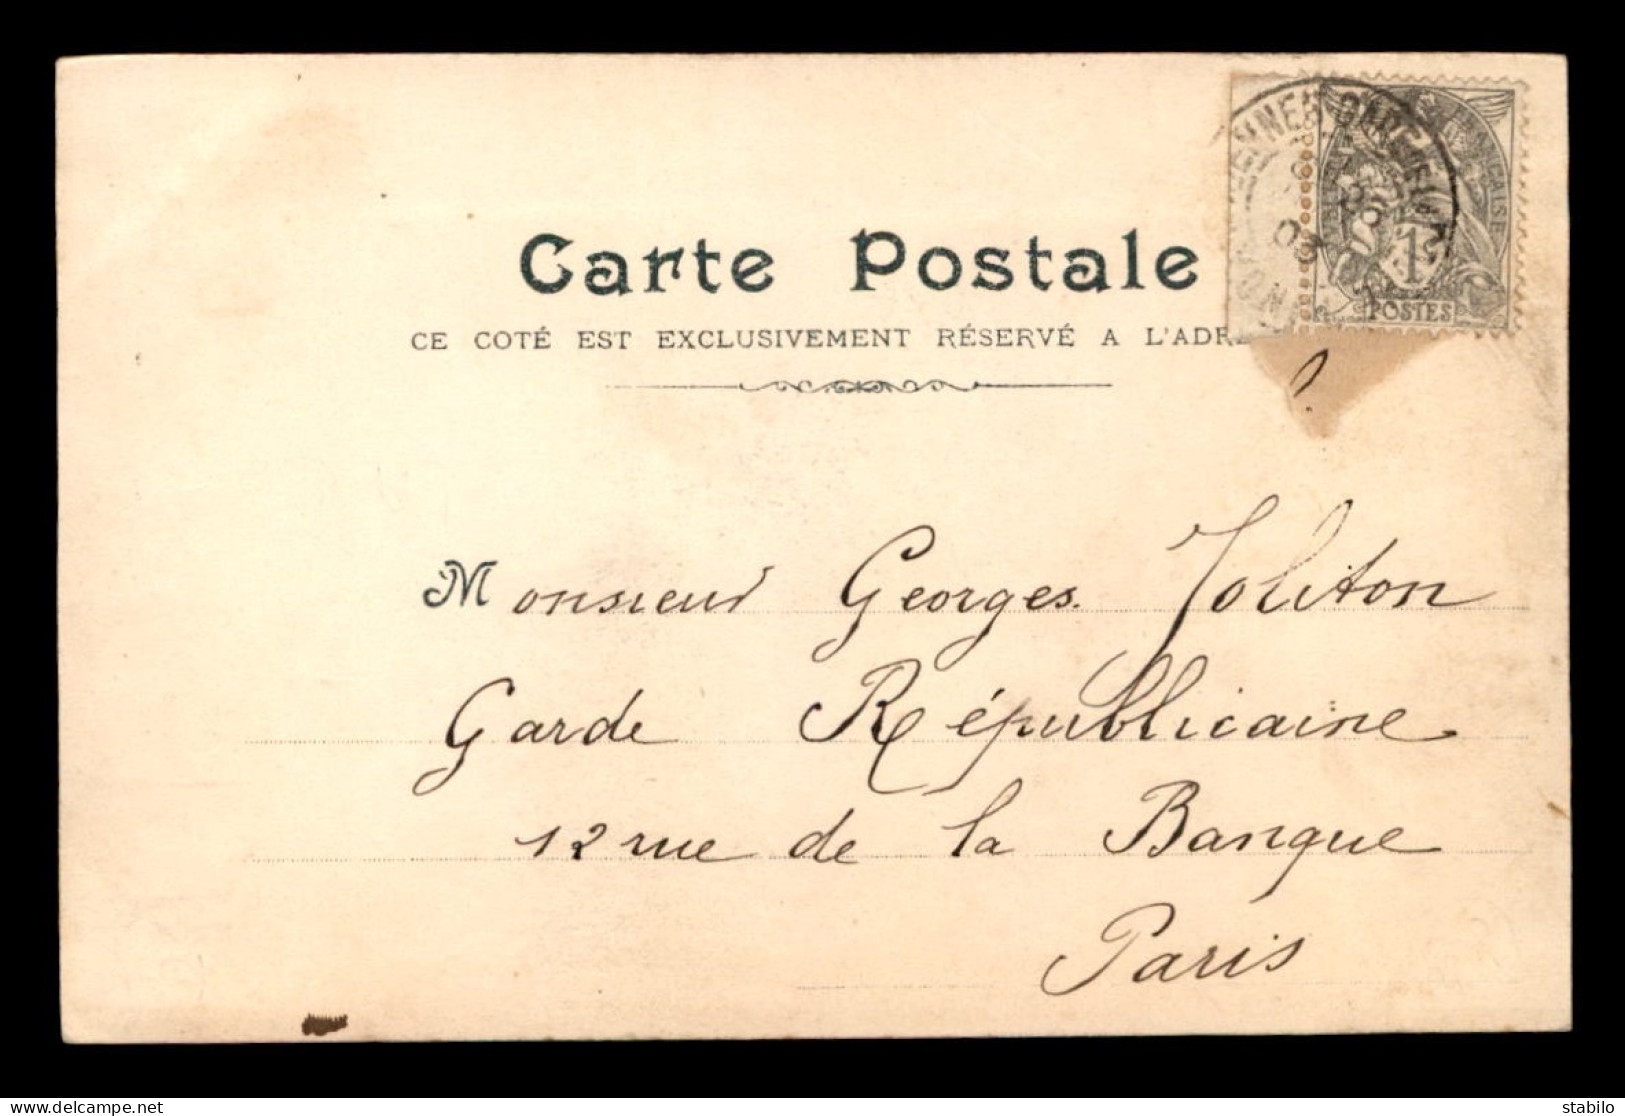 Carte Postale
CE COTÉ EST EXCLUSIVEMENT RÉSERVÉ A L'ADRE
1
POSTES
03
Monsieur Georges Joliton
Garde Républicaine
12 rue de la Banque
Paris
delcampe.net
stabilo